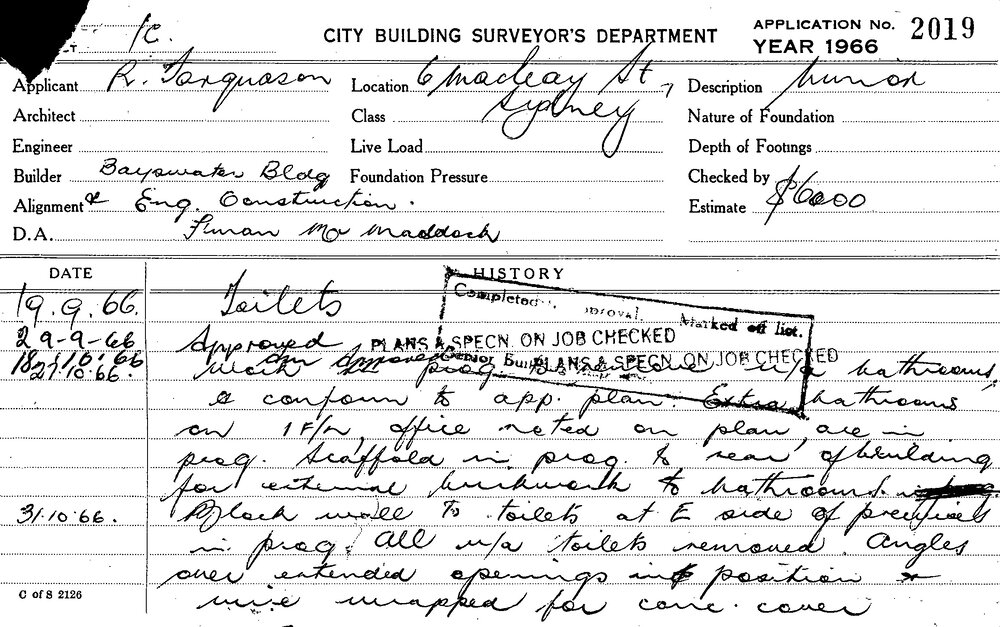 1c.
CITY BUILDING SURVEYOR'S DEPARTMENT
APPLICATION No. 2019
YEAR 1966
Applicant R. Farguason
Location 6 Macleay St,
Sydney
Description Minor
Architect
Class
Nature of Foundation
Engineer
Live Load
Depth of Footings
Builder Bayswater Bldg
Foundation Pressure
Checked by
Alignment & Eng. Construction.
Estimate $6000
D.A. Mc Maddock
DATE
HISTORY
19.9.66. Toilets
Completed approval. Marked off list.
29-9-66 Approved
PLANS & SPECN. ON JOB CHECKED
18.10.66
Senior Bui
PLANS & SPECN. ON JOB CHECKED
27.10.66. Work in prog. u/a bathrooms
& conform to app. plan. Extra bathrooms
on 1 F/R, office noted on plan, are in
prog. Scaffold in prog. to rear of building
for external brickwork to bathrooms.
31.10.66. Block wall to toilets at E side of premises
in prog. All u/a toilets removed. Angles
over extended openings in position &
wire wrapped for conc. cover
C of S 2126